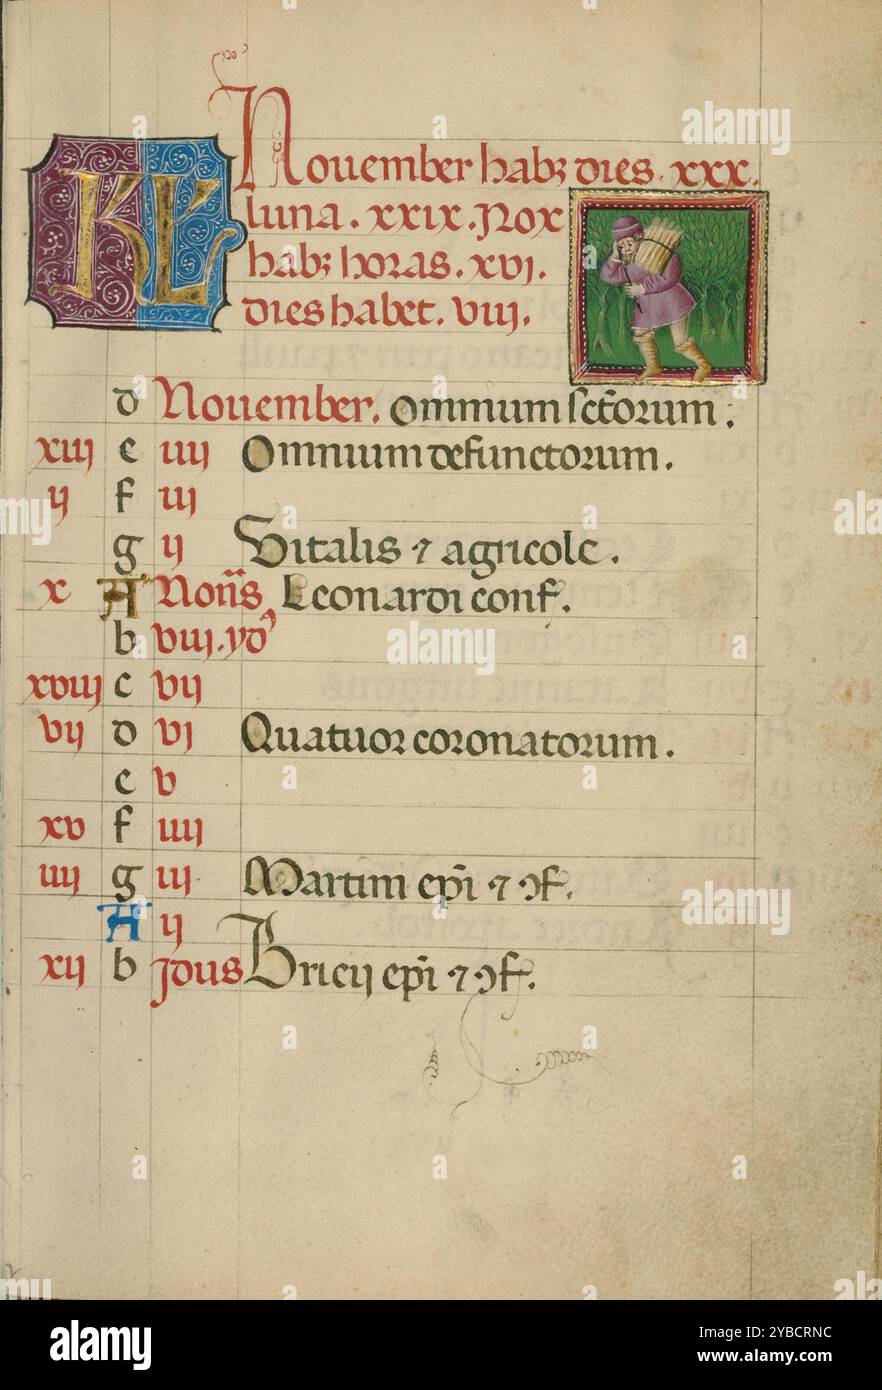 KL November habꝫ dies . xxx.
luna . xxix . Nox
habꝫ horas . xvj .
dies habet . viij .
d November . Omnium sctorum :
xiij e iiij Omnium defunctorum .
ij f iij
g ij Vitalis ⁊ agricole .
x A Nonis Leonardi conf .
b viij . yd
xviij c vij
vij d vj Quatuor coronatorum .
e v
xv f iiij
iiij g iij Martini epi ⁊ ↄf .
A ij
xij b Jdus Bricij epi ⁊ ↄf .
alamy
Image ID: 2YBCRNC
www.alamy.com